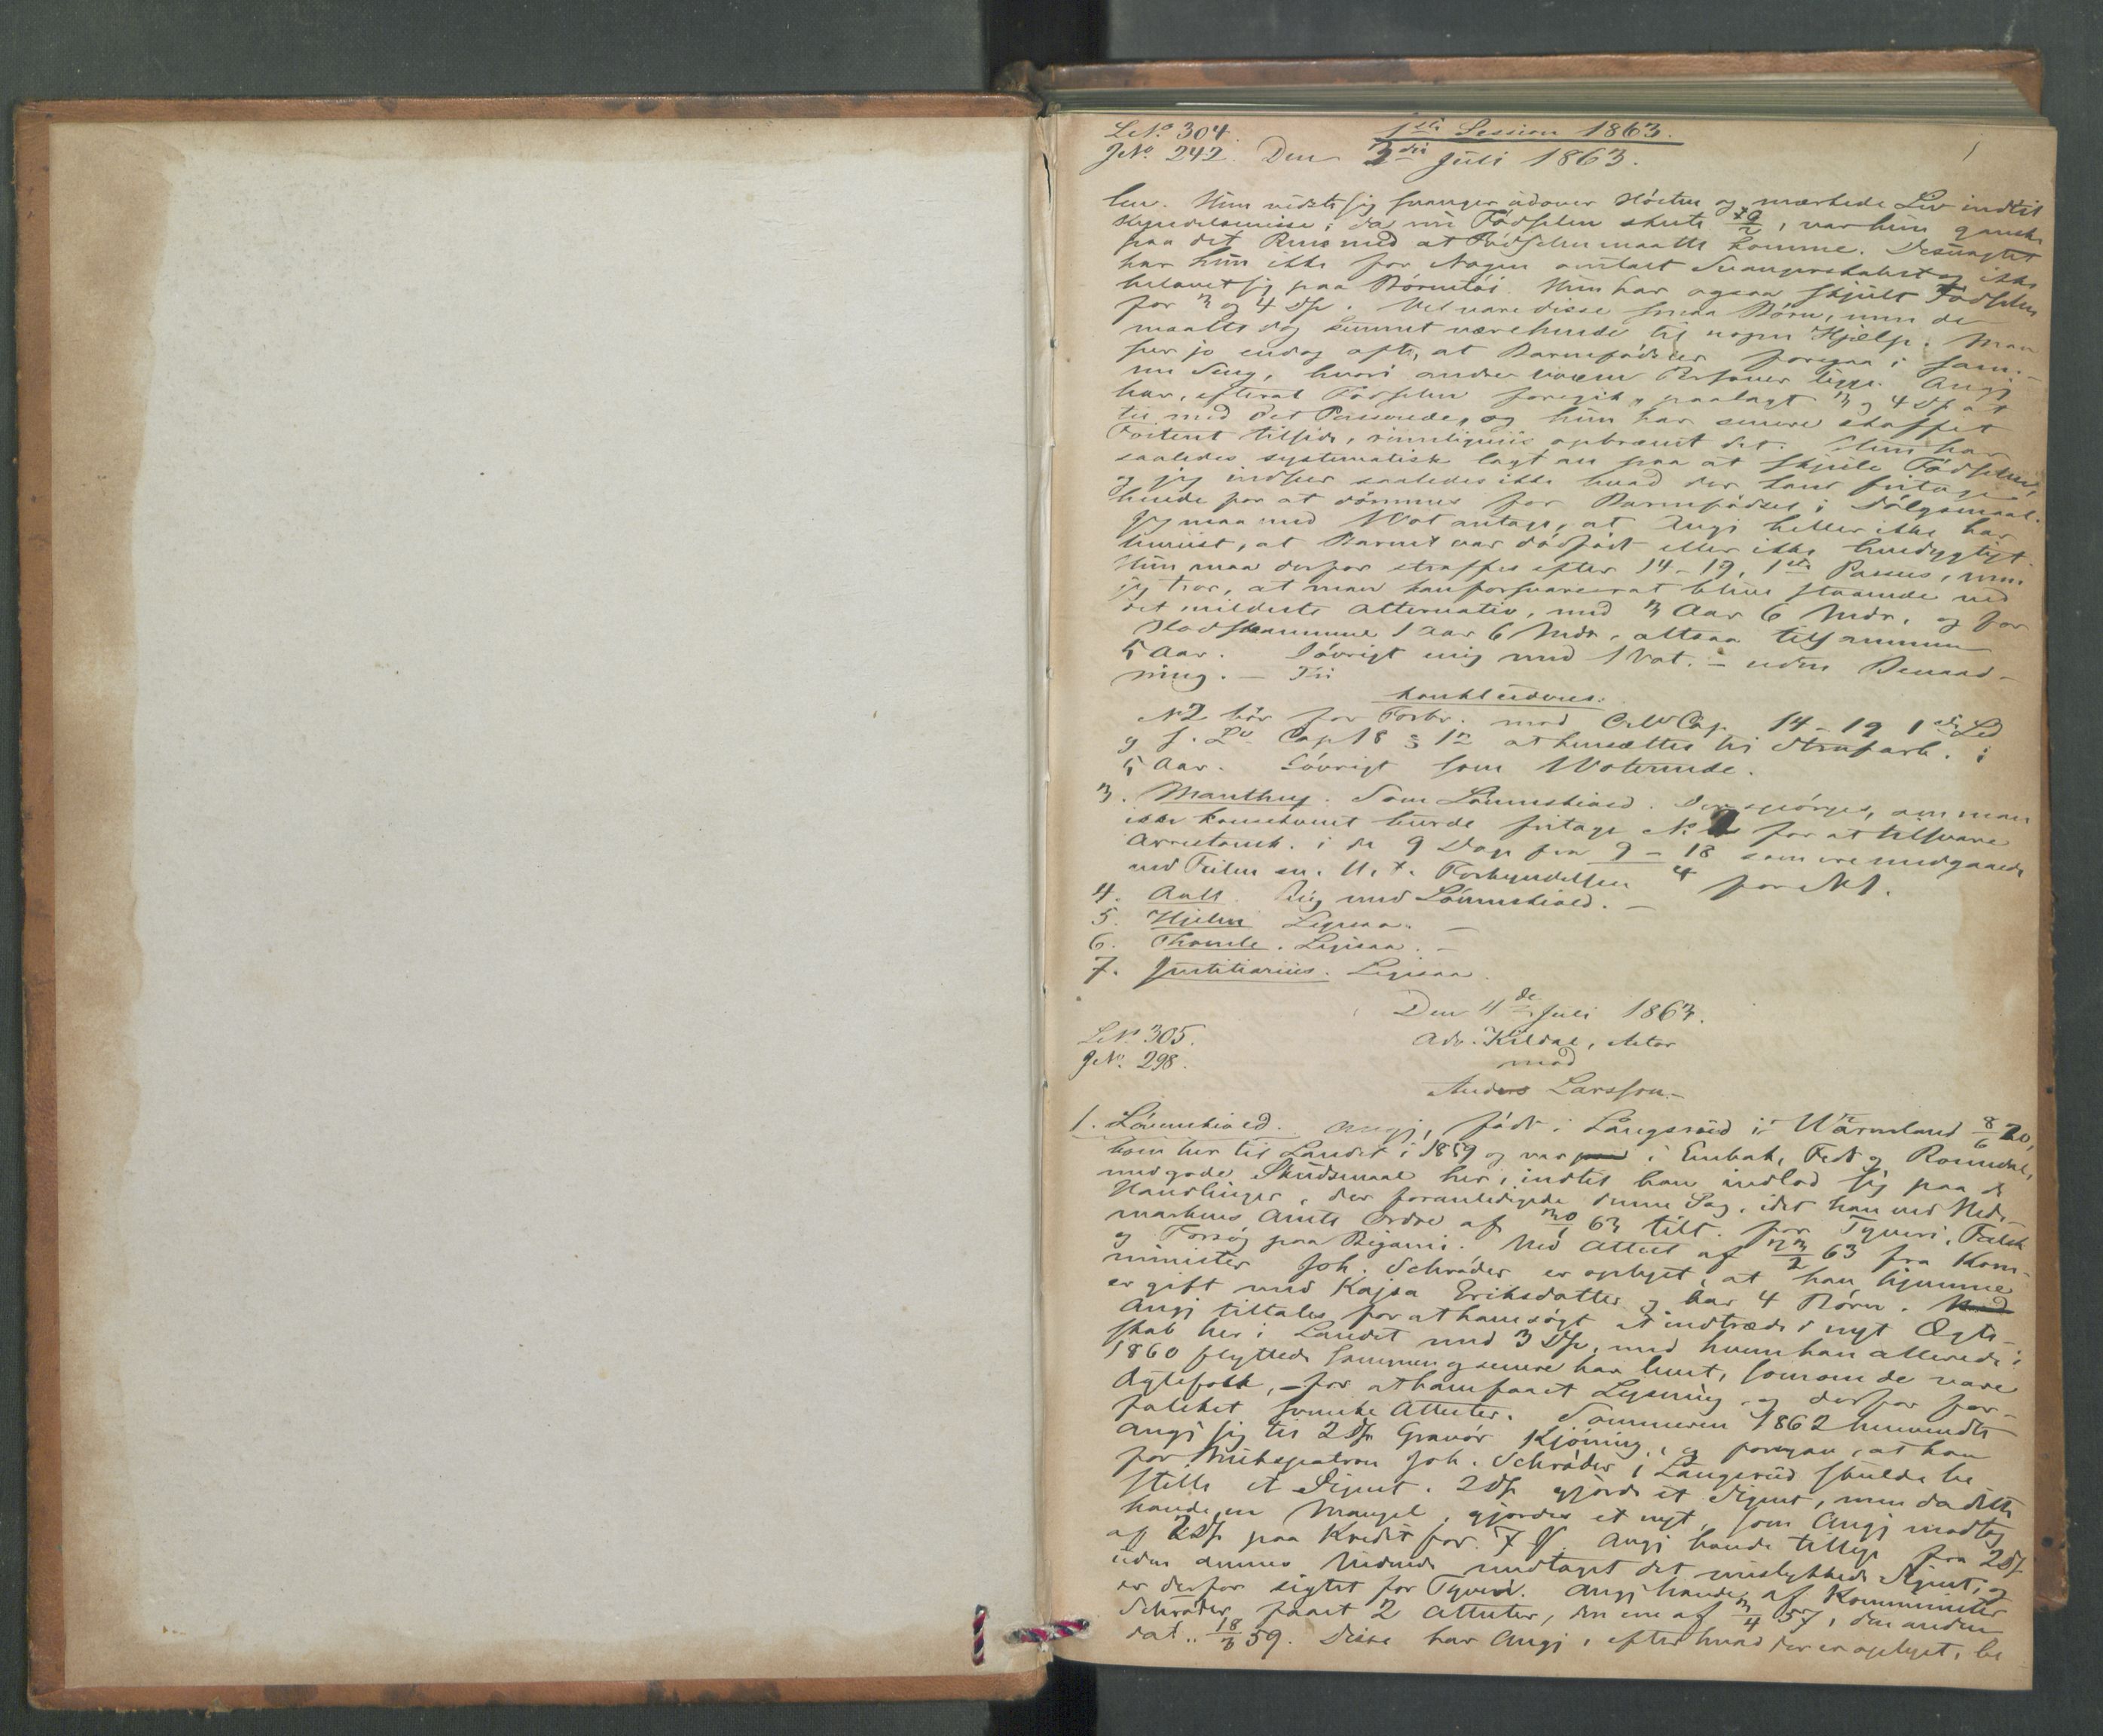 L.No. 304. 1ste Session 1863.
J.No. 242. Den 2den Juli 1863. 1
len. Hun vidste sig svanger udover Høsten og mærkede Liv indtil
; da nu Fødselen skete 19/2, var hun ganske
paa det Rene med at Fødselen maatte komme. Desuagtet
har hun ikke for Nogen omtalt Svangerskabet og ikke
belavet sig paa Børnetøi. Hun har ogsaa skjult Fødselen
for 3 og 4 Dp. Vel vare disse smaa Børn, men de
maatte dog kunnet være hende til nogen Hjælp. Man
ser jo endog ofte, at Barnefødsler foregaa i sam-
me Seng, hvori andre voxne Personer ligge. Angj
har, efterat Fødselen foregik, paalagt 3 og 4 Dp at
tie med det Passerede, og hun har senere skaffet
Fosteret tilside, rimeligviis opbrændt det. Hun har
saaledes systematisk lagt an paa at skjule Fødselen,
og jeg indseer saaledes ikke hvad der kan fritage
hende for at dømmes for Barnefødsel i Dølgsmaal.
Jeg maa med 1 Vot antage, at Angj heller ikke har
beviist, at Barnet var dødfødt eller ikke levedygtigt.
Hun maa derfor straffes efter 14-19, 1ste Passus, men
jeg tror, at man kan forsvare at blive staaende ved
det mildeste Alternativ, med 3 Aar 6 Mdr, og for
Blodskammen 1 Aar 6 Mdr, altsaa tilsammen
5 Aar. Iøvrigt enig med 1 Vot. – uden Benaad-
ning. – Til
konkluderes:
No 2 bør for Forbr. mod Crl. Cap. 14-19 1ste Led
og s. L. Cap 18 § 12 at hensættes til Strafarb. i
5 Aar. Iøvrigt som 1 Voterende.
3. Manthey. Som Løvenskiold. Der spørges, om man
ikke konsekvent burde fritage No. 2 for at tilsvare
Arrestomk. i de 9 Dage fra 9 – 18/4 som ere medgaaede
ved Feilen m. H. t. Forkyndelsen for No 1.
4. Aall. Enig med Løvenskiold. –
5. Hjelm Ligesaa. –
6. Thomle. Ligesaa. –
7. Justitiarius. Ligesaa.
Den 4de Juli 1863.
L.No. 305. Adv. Kildal, Aktor
J.No. 298. mod
Anders Larsson. –
1. Løvenskiold. Angj, født i Långserud i Wärmland 8/6 20,
kom her til Landet i 1859 og var i Enebak, Fet og Romedal,
med gode Skudsmaal her, indtil han indlod sig paa de
Handlinger, der foranledigede denne Sag, idet han ved Hede-
markens Amts Ordre af 30/1 63 tilt. for Tyveri, Falsk
og Forsøg paa Bigami. Ved Attest af 23/2 63 fra Kom-
minister Joh. Schröder er oplyst, at han hjemme
er gift med Kajsa Eriksdatter og har 4 Børn.
Angj tiltales for at have søgt at indtræde i nyt Ægte-
skab her i Landet med 3 Dp, med hvem han allerede i
1860 flyttede sammen og senere har levet, som om de vare
Ægtefolk, – for at have faaet Lysning, og derfor for-
falsket svenske Attester. Sommeren 1862 henvendte
Angj sig til 2 Dp Gravør Kjøning, og foregav, at han
for Brukspatron Joh. Schröder i Långserud skulde be
stille et Signet. 2 Dp gjorde et Signet, men da dette
havde en Mangel, gjordes et nyt, som Angj modtog
af 2 Dp paa Kredit for 7 . Angj havde tillige fra 2 Dp
uden dennes Vidende medtaget det mislykkede Signet, og
er derfor sigtet for Tyveri. Angj havde af Komminister
Schröder faaet 2 Attester, den ene af 3/4 57, den anden
dat. 18/3 59. Disse har Angj, efter hvad der er oplyst, be